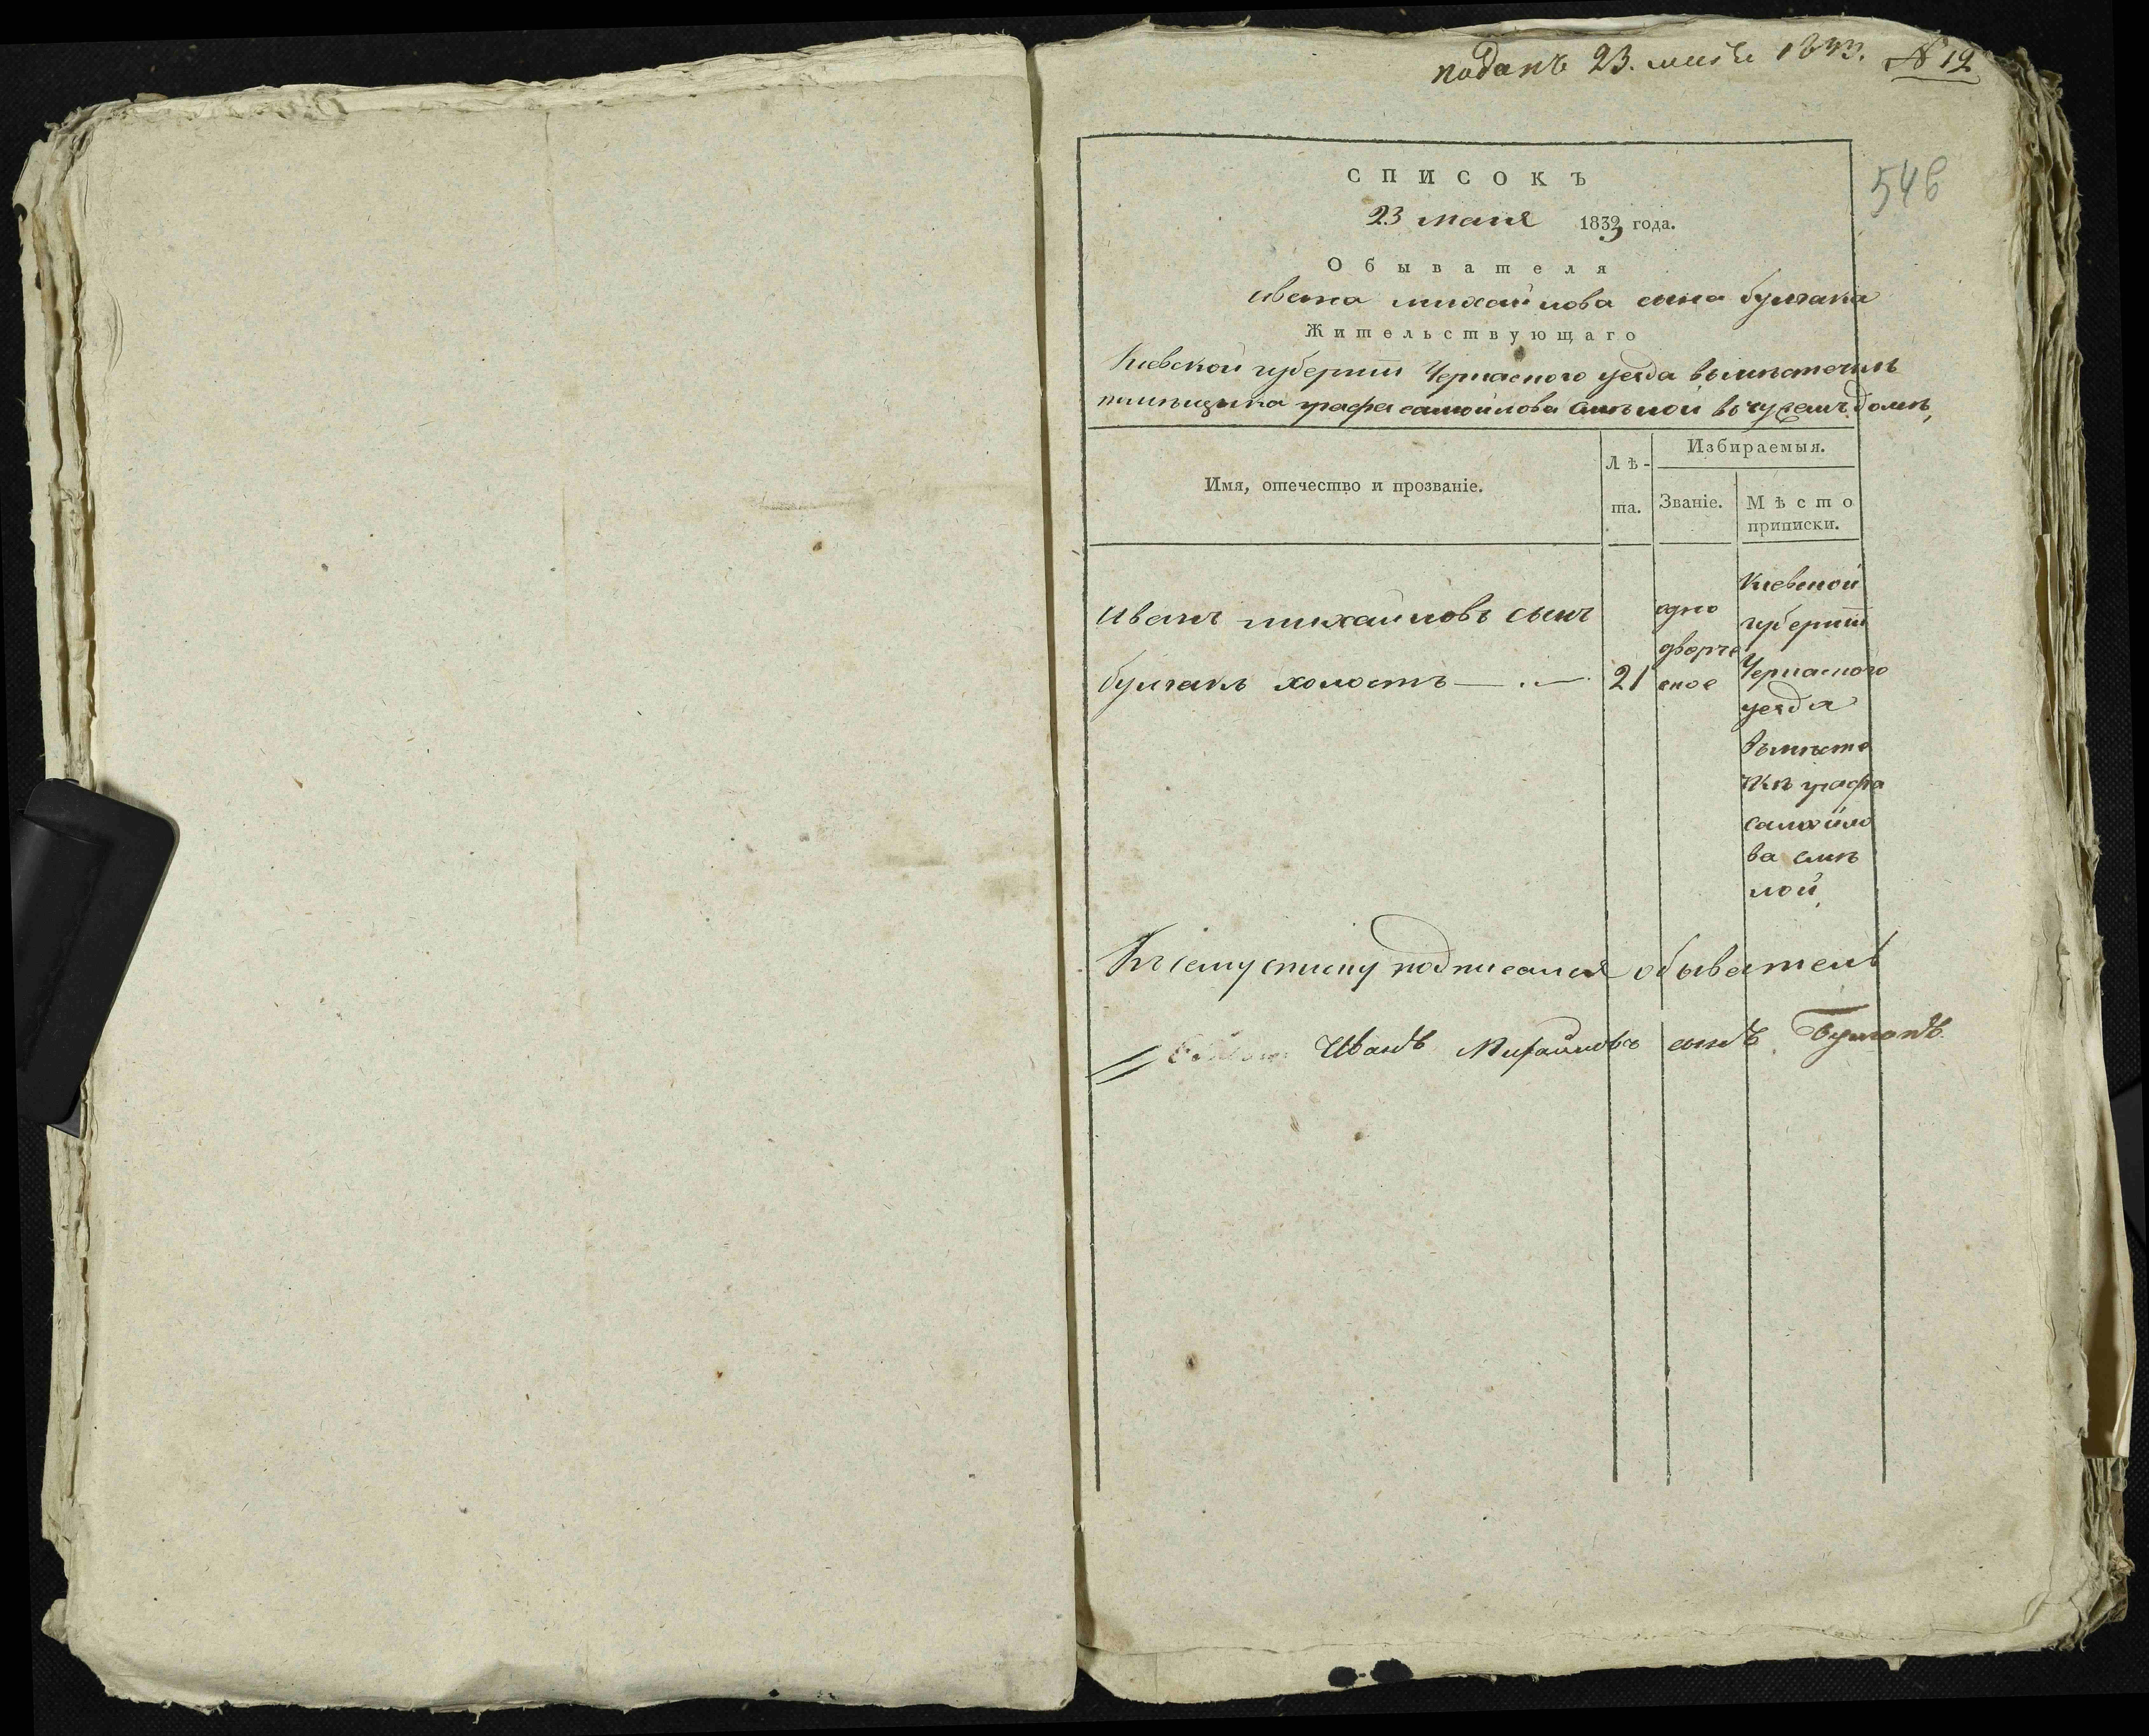 поданъ 23. маія 1833. №12
546
СПИСОКЪ
23 маия 1833 года.
Обывателя
ивана михайлова сына булгака
Жительствующаго
Киевской губернии Черкаского уезда вьмѣстечкѣ
помѣщика графа самойлова смѣлой въ чужемъ домѣ,
Имя, отечество и прозваніе.
Лѣ-
та.
Избираемыя.
Званіе.
Мѣсто
приписки.
иванъ михайловъ сынъ
булгакъ холостъ
21
одно
дворче
ское
Киевской
губернии
Черкаского
уезда
вьмѣсте
чкѣ графа
самойло
ва смѣ
лой,
Къ сему списку подписался обыватель
Иванъ Михайловъ сынъ Булгакъ